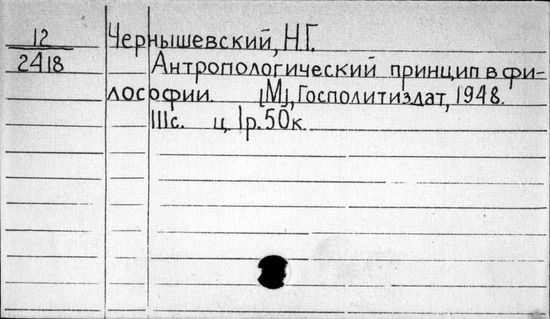 12 Чернышевский, Н.Г.
2418 Антропологический принцип в фи-
лософии. [М], Госполитиздат, 1948.
111с. ц. 1р.50к.